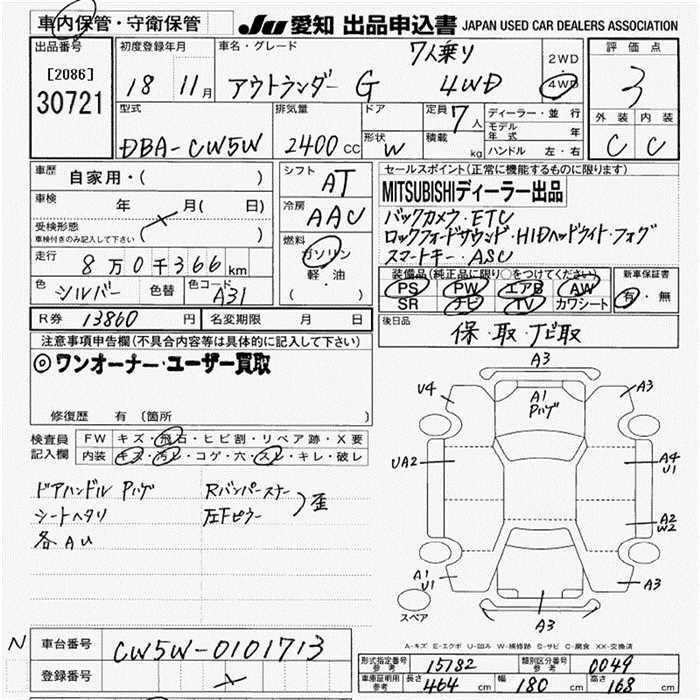 車内保管・守衛保管
JU 愛知 出品申込書 JAPAN USED CAR DEALERS ASSOCIATION
出品番号 [2086] 30721
初度登録年月 18 11月
車名・グレード 7人乗り
アウトランダー G 4WD
2WD
4WD
評価点 3
外装 内装
C C
型式 DBA-CW5W
排気量 2400 CC
ドア
形状 W
定員 7人
積載 kg
ディーラー・並行
モデル年式 年
ハンドル 左・右
車歴 自家用・( )
車検 年 月( 日)
受検形態
車検付きのみ記入して下さい ( )
走行 8万0千366km
色 シルバー 色替 色コード A31
シフト AT
冷房 AAC
燃料 ガソリン
軽・油
( )
セールスポイント(正常に機能するものに限ります)
MITSUBISHIディーラー出品
バックカメラ・ETC
ロックフォードサウンド・HIDヘッドライト・フォグ
スマートキー・ASC
装備品(純正品に限り○をつけてください)
PS PW エアB AW
SR ナビ TV カワシート
新車保証書
有・無
R券 13860 円 名変期限 月 日
後日品 保・取・ナビ取
注意事項申告欄(不具合内容等は具体的に記入して下さい)
◎ワンオーナー・ユーザー買取
修復歴 有 (箇所 )
検査員記入欄
FW キズ・飛石・ヒビ割・リペア跡・X要
内装 キズ・汚レ・コゲ・穴・スレ・キレ・破レ
ドアハンドル Pハゲ
シートヘタリ
各AU
Rバンパースナー
左Fピラー
)歪
A3
U4
A3
A1
Pハゲ
UA2
A4
U1
A2
W2
A1
U1
A3
A3
スペア
A-キズ E-エクボ U-凹み W-補修跡 S-サビ C-腐食 XX-交換済
N
車台番号 CW5W-0101713
登録番号
型式指定番号 参考 15182 類別区分番号 参考 0049
車庫証明用 参考 長さ 464 cm 幅 180 cm 高さ 168 cm